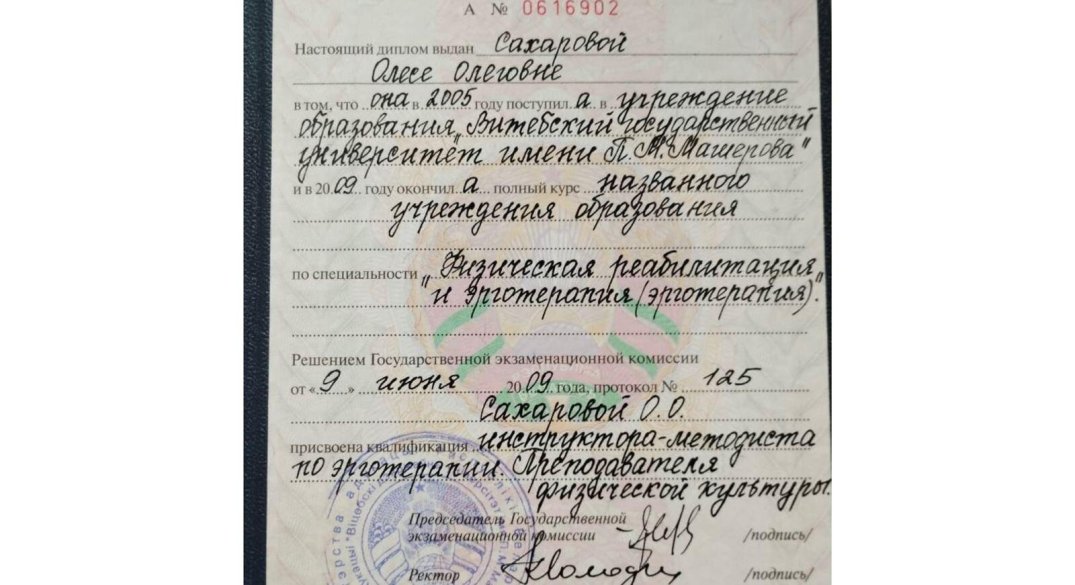 А № 0616902
Настоящий диплом выдан Сахаровой
Олесе Олеговне
в том, что она в 2005 году поступил а в учреждение
образования „Витебский государственный
университет имени П.М.Машерова"
и в 2009 году окончил а полный курс названного
учреждения образования
по специальности „Физическая реабилитация
и эрготерапия (эрготерапия)."
Решением Государственной экзаменационной комиссии
от «9» июня 2009 года, протокол № 125
Сахаровой О.О.
присвоена квалификация инструктора-методиста
по эрготерапии. Преподавателя
физической культуры.
Председатель Государственной
экзаменационной комиссии /подпись/
Ректор /подпись/